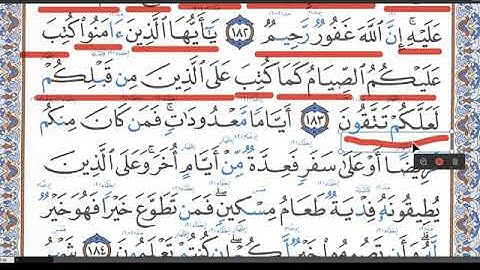 عَلَيْهِ إِنَّ ٱللَّهَ غَفُورٌ رَّحِيمٌ ١٨٢ يَـٰٓأَيُّهَا ٱلَّذِينَ ءَامَنُوا۟ كُتِبَ
عَلَيْكُمُ ٱلصِّيَامُ كَمَا كُتِبَ عَلَى ٱلَّذِينَ مِن قَبْلِكُمْ
لَعَلَّكُمْ تَتَّقُونَ ١٨٣ أَيَّامًا مَّعْدُودَٰتٍ فَمَن كَانَ مِنكُم
مَّرِيضًا أَوْ عَلَىٰ سَفَرٍ فَعِدَّةٌ مِّنْ أَيَّامٍ أُخَرَ وَعَلَى ٱلَّذِينَ
يُطِيقُونَهُۥ فِدْيَةٌ طَعَامُ مِسْكِينٍ فَمَن تَطَوَّعَ خَيْرًا فَهُوَ خَيْرٌ
لَّهُۥ وَأَن تَصُومُوا۟ خَيْرٌ لَّكُمْ إِن كُنتُمْ تَعْلَمُونَ ١٨٤ شَهْرُ